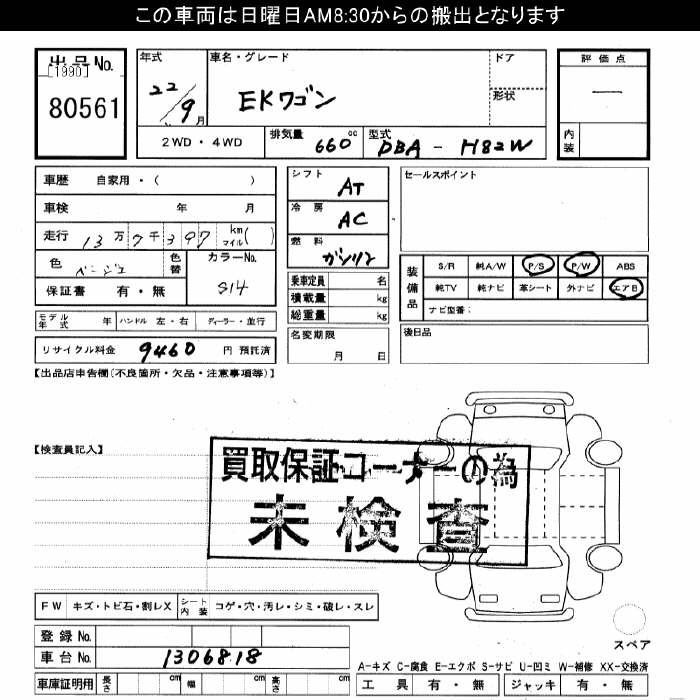 この車両は日曜日AM8:30からの搬出となります
出品No.
[1990]
80561
年式 22/9月
車名・グレード EKワゴン
ドア
形状
評価点 一
内装
2WD・4WD
排気量 660cc
型式 DBA-H82W
車歴 自家用・( )
車検 年 月
走行 13万7千397 km マイル( )
色 ベージュ 色替
カラーNo. S14
保証書 有・無
シフト AT
冷房 AC
燃料 ガソリン
乗車定員 名
積載量 kg
総重量 kg
セールスポイント
装備品
S/R 純A/W P/S P/W ABS
純TV 純ナビ 革シート 外ナビ エアB
ナビ型番:
モデル年式 年 ハンドル 左・右 ディーラー・並行
名変期限 月 日
後日品
リサイクル料金 9460 円 預託済
【出品店申告欄(不良箇所・欠品・注意事項等)】
【検査員記入】
買取保証コーナーの為
未検査
FW キズ・トビ石・割レX シート内装 コゲ・穴・汚レ・シミ・破レ・スレ
スペア
登録No.
車台No. 1306818
A-キズ C-腐食 E-エクボ S-サビ U-凹ミ W-補修 XX-交換済
車庫証明用 長さ cm 幅 cm 高さ cm
工具 有・無 ジャッキ 有・無